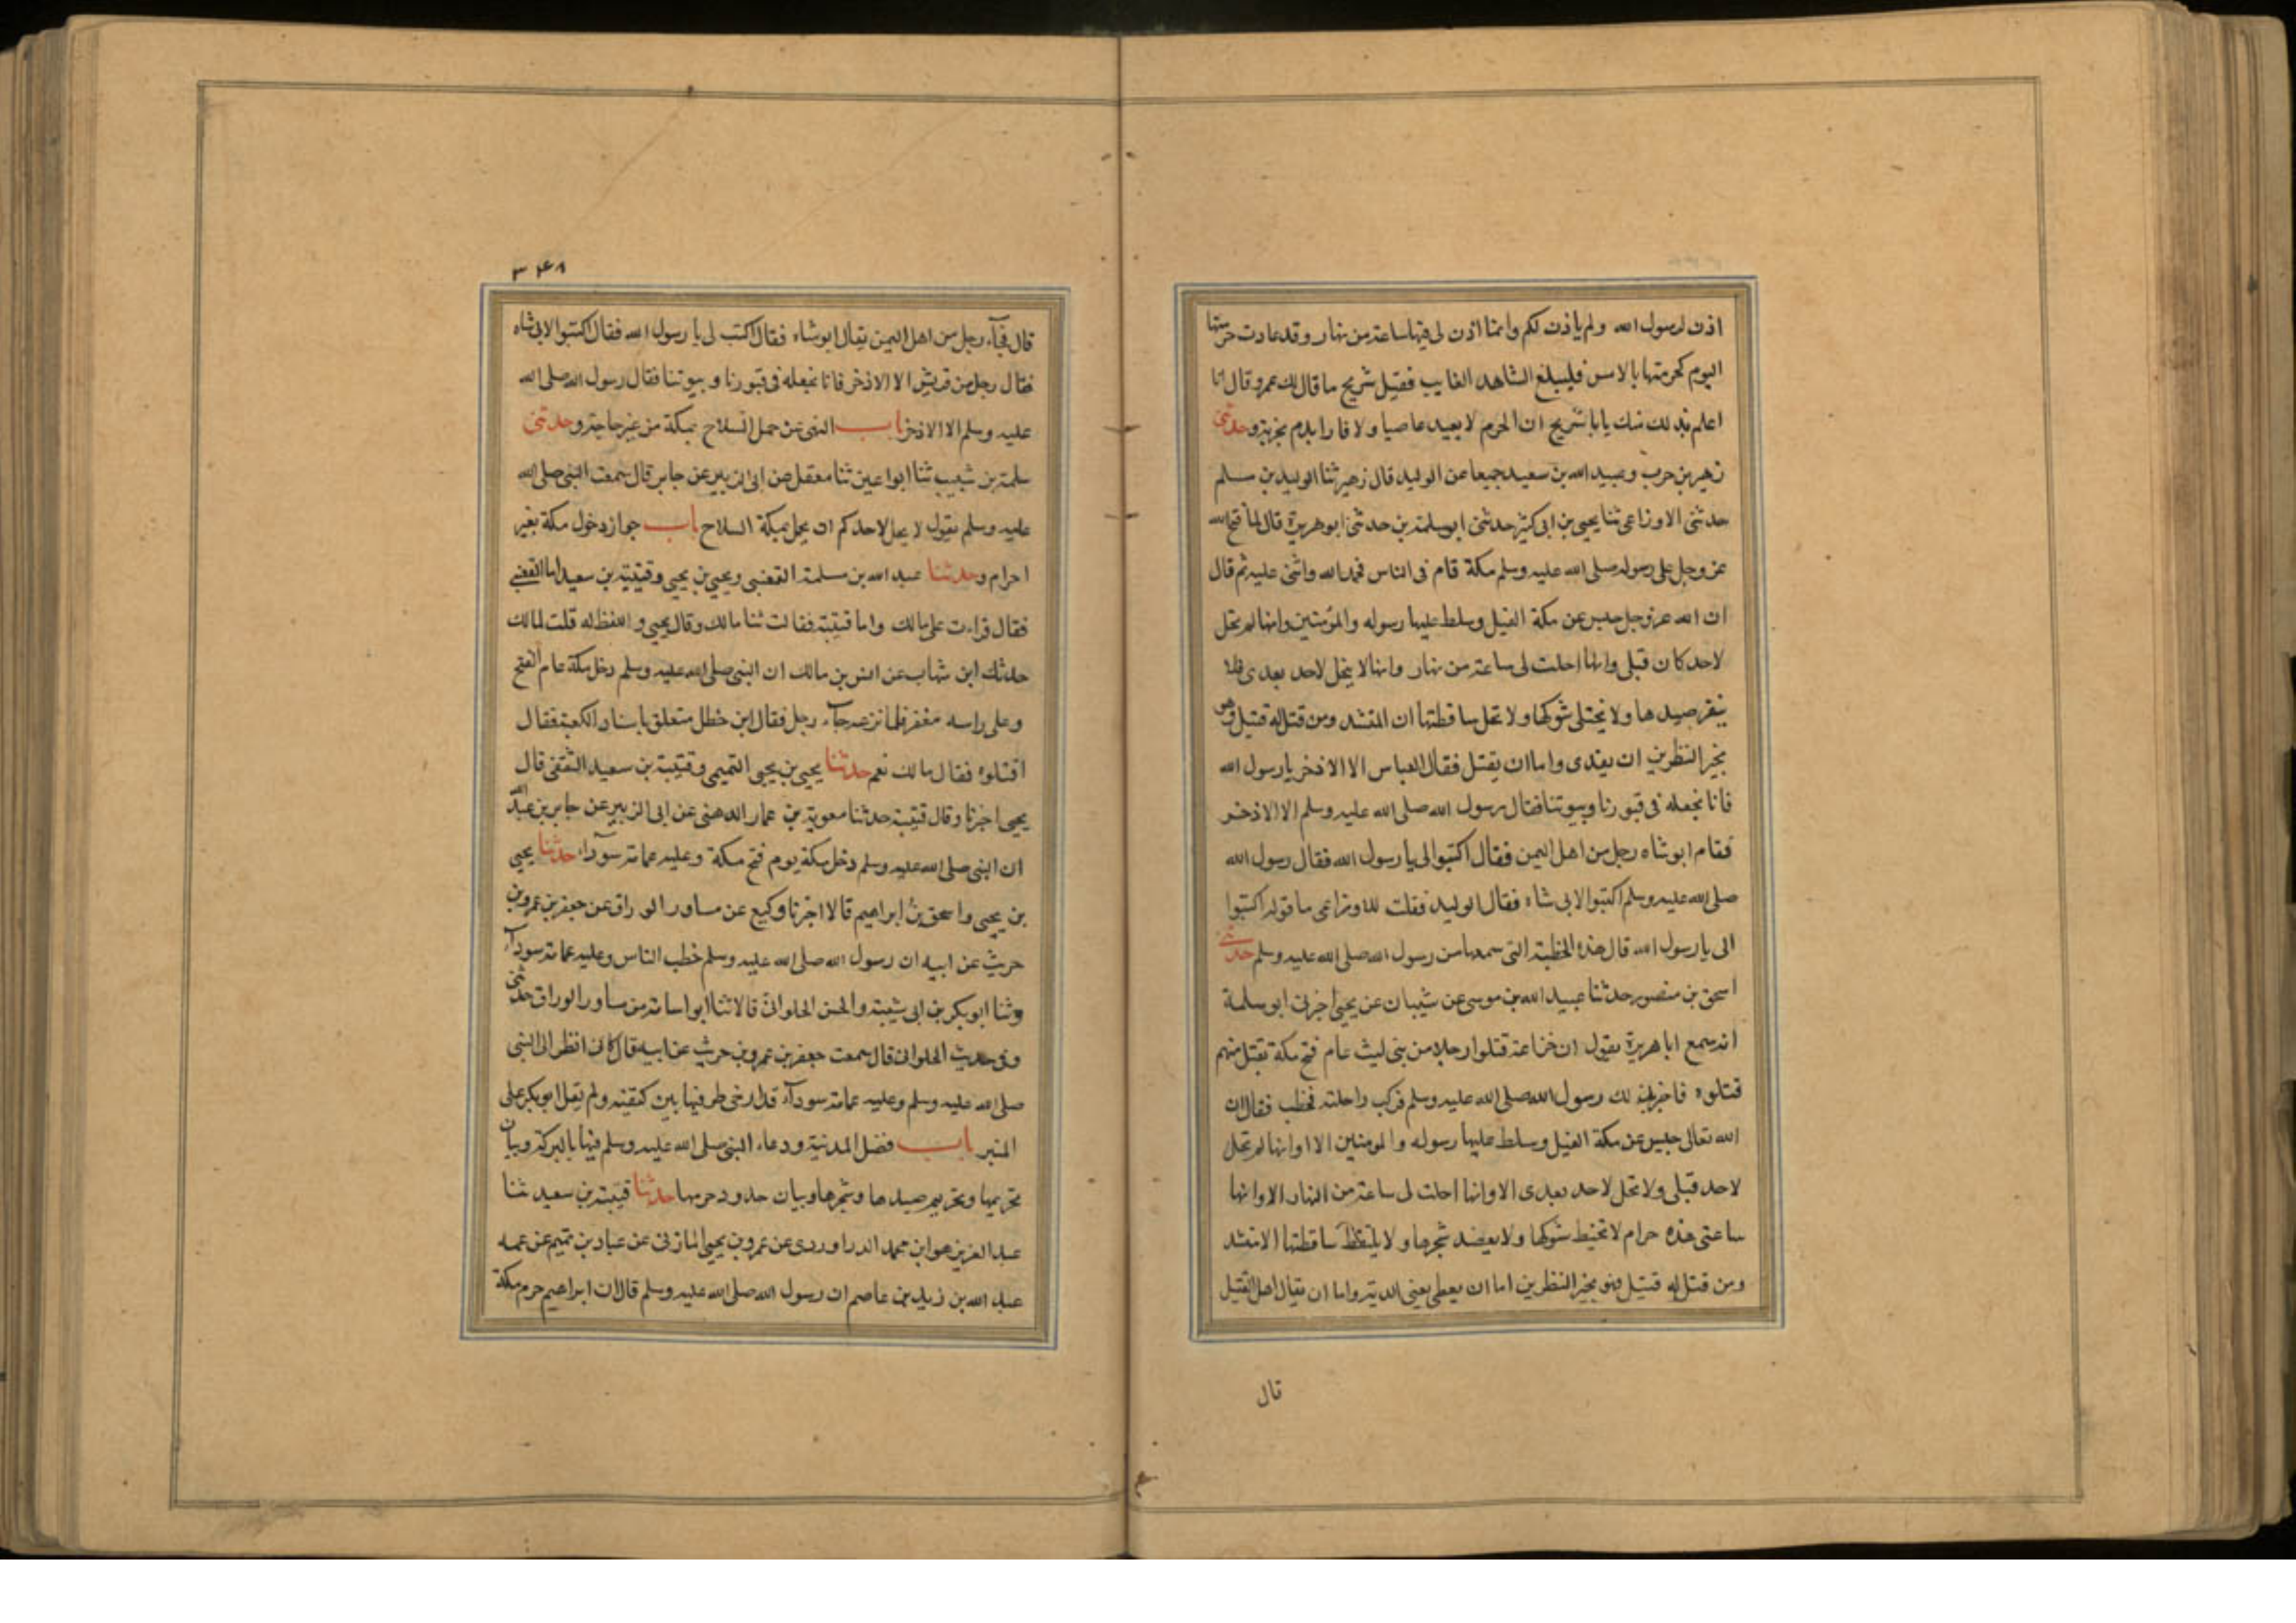 اذن لرسول الله ولم ياذن لكم وانما اذن لى فيها ساعة من نهار وقد عادت حرمتها
اليوم كحرمتها بالامس فليبلغ الشاهد الغايب فقيل شريح ما قال لك عمرو قال انا
اعلم بذلك منك يابا شريح ان الحرم لا يعيد عاصيا ولا فارا بدم بخربة وحدثنى
زهير بن حرب وعبيد الله بن سعيد جميعا عن الوليد قال زهير ثنا الوليد بن مسلم
حدثنى الاوزاعى ثنا يحيى بن ابى كثير حدثنى ابوسلمة بن حدثنى ابوهريرة قال لما فتح الله
عز وجل على رسوله صلى الله عليه وسلم مكة قام فى الناس فحمد الله واثنى عليه ثم قال
ان الله عز وجل حبس عن مكة الفيل وسلط عليها رسوله والمؤمنين وانها لم تحل
لاحد كان قبلى وانها احلت لى ساعة من نهار وانها لا تحل لاحد بعدى فلا
ينفر صيدها ولا يختلى شوكها ولا تحل ساقطتها ان المنشد ومن قتل له قتيل فهو
بخير النظرين ان يفدى واما ان يقتل فقال العباس الا الاذخر يا رسول الله
فانا نجعله فى قبورنا وبيوتنا فقال رسول الله صلى الله عليه وسلم الا الاذخر
فقام ابوشاه رجل من اهل اليمن فقال اكتبوا لى يا رسول الله فقال رسول الله
صلى الله عليه وسلم اكتبوا لابى شاه فقال الوليد فقلت للاوزاعى ما قوله اكتبوا
الى يا رسول الله قال هذه الخطبة التى سمعها من رسول الله صلى الله عليه وسلم حدثنى
اسحق بن منصور حدثنا عبيد الله بن موسى عن شيبان عن يحيى اخبرنى ابوسلمة
انه سمع ابا هريرة يقول ان خزاعة قتلوا رجلا من بنى ليث عام فتح مكة بقتل منهم
قتلوه فاخبر بذلك رسول الله صلى الله عليه وسلم فركب راحلته فخطب فقال ان
الله تعالى حبس عن مكة الفيل وسلط عليها رسوله والمومنين الا وانها لم تحل
لاحد قبلى ولا تحل لاحد بعدى الا وانها احلت لى ساعة من النهار الا وانها
ساعتى هذه حرام لا تخبط شوكها ولا يعضد شجرها ولا يلتقط ساقطتها الا منشد
ومن قتل له قتيل فهو بخير النظرين اما ان يعطى يعنى الدية واما ان يقال اهل القتيل
قال
٣٤٨
قال فجآء رجل من اهل اليمن يقال ابوشاه فقال اكتب لى يا رسول الله فقال اكتبوا لابى شاه
فقال رجل من قريش الا الاذخر فانا نجعله فى قبورنا وبيوتنا فقال رسول الله صلى الله
عليه وسلم الا الاذخر باب النهى عن حمل السلاح بمكة من غير حاجة وحدثنى
سلمة بن شبيب ثنا ابواعين ثنا معقل عن ابى الزبير عن جابر قال سمعت النبى صلى الله
عليه وسلم يقول لا يحل لاحدكم ان يحمل بمكة السلاح باب جواز دخول مكة بغير
احرام وحدثنا عبد الله بن مسلمة القعنبى ويحيى بن يحيى وقتيبة بن سعيد اما القعنبى
فقال قراءت على مالك واما قتيبة فقالت ثنا مالك وقال يحيى واللفظ له قلت لمالك
حدثك ابن شهاب عن انس بن مالك ان النبى صلى الله عليه وسلم دخل مكة عام الفتح
وعلى راسه مغفر فلما نزعه جآء رجل فقال ابن خطل متعلق باستار الكعبة فقال
اقتلوه فقال مالك نعم حدثنا يحيى بن يحيى التميمى وقتيبة بن سعيد الثقفى قال
يحيى اخبرنا وقال قتيبة حدثنا معوية بن عمار الدهنى عن ابى الزبير عن جابر بن عبد الله
ان النبى صلى الله عليه وسلم دخل مكة يوم فتح مكة وعليه عمامة سودآء حدثنا يحيى
بن يحيى واسحق بن ابراهيم قالا اخبرنا وكيع عن مساور الوراق عن جعفر بن عمرو بن
حريث عن ابيه ان رسول الله صلى الله عليه وسلم خطب الناس وعليه عمامة سودآء
وثنا ابوبكر بن ابى شيبة والحسن الحلوانى قالا ثنا ابواسامة من مساور الوراق حدثنى
وفى حديث الحلوانى قال سمعت جعفر بن عمرو بن حريث عن ابيه قال كانى انظر الى النبى
صلى الله عليه وسلم وعليه عمامة سودآء قد ارخى طرفيها بين كتفيه ولم يقل ابوبكر على
المنبر باب فضل المدينة ودعاء النبى صلى الله عليه وسلم فيها بالبركة وبيان
تحريمها وتحريم صيدها وشجرها وبيان حدود حرمها حدثنا قتيبة بن سعيد ثنا
عبد العزيز هو ابن محمد الدراوردى عن عمرو بن يحيى المازنى عن عباد بن تميم عن عمه
عبد الله بن زيد بن عاصم ان رسول الله صلى الله عليه وسلم قال ان ابراهيم حرم مكة